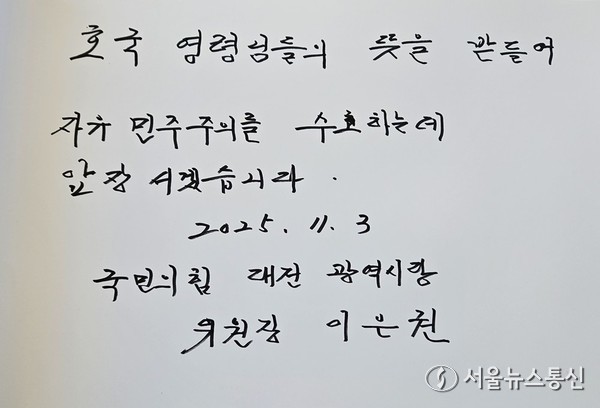 호국 영령님들의 뜻을 받들어
자유 민주주의를 수호하는데
앞장 서겠습니다.
2025. 11. 3
국민의힘 대전 광역시당
위원장 이은권
서울뉴스통신